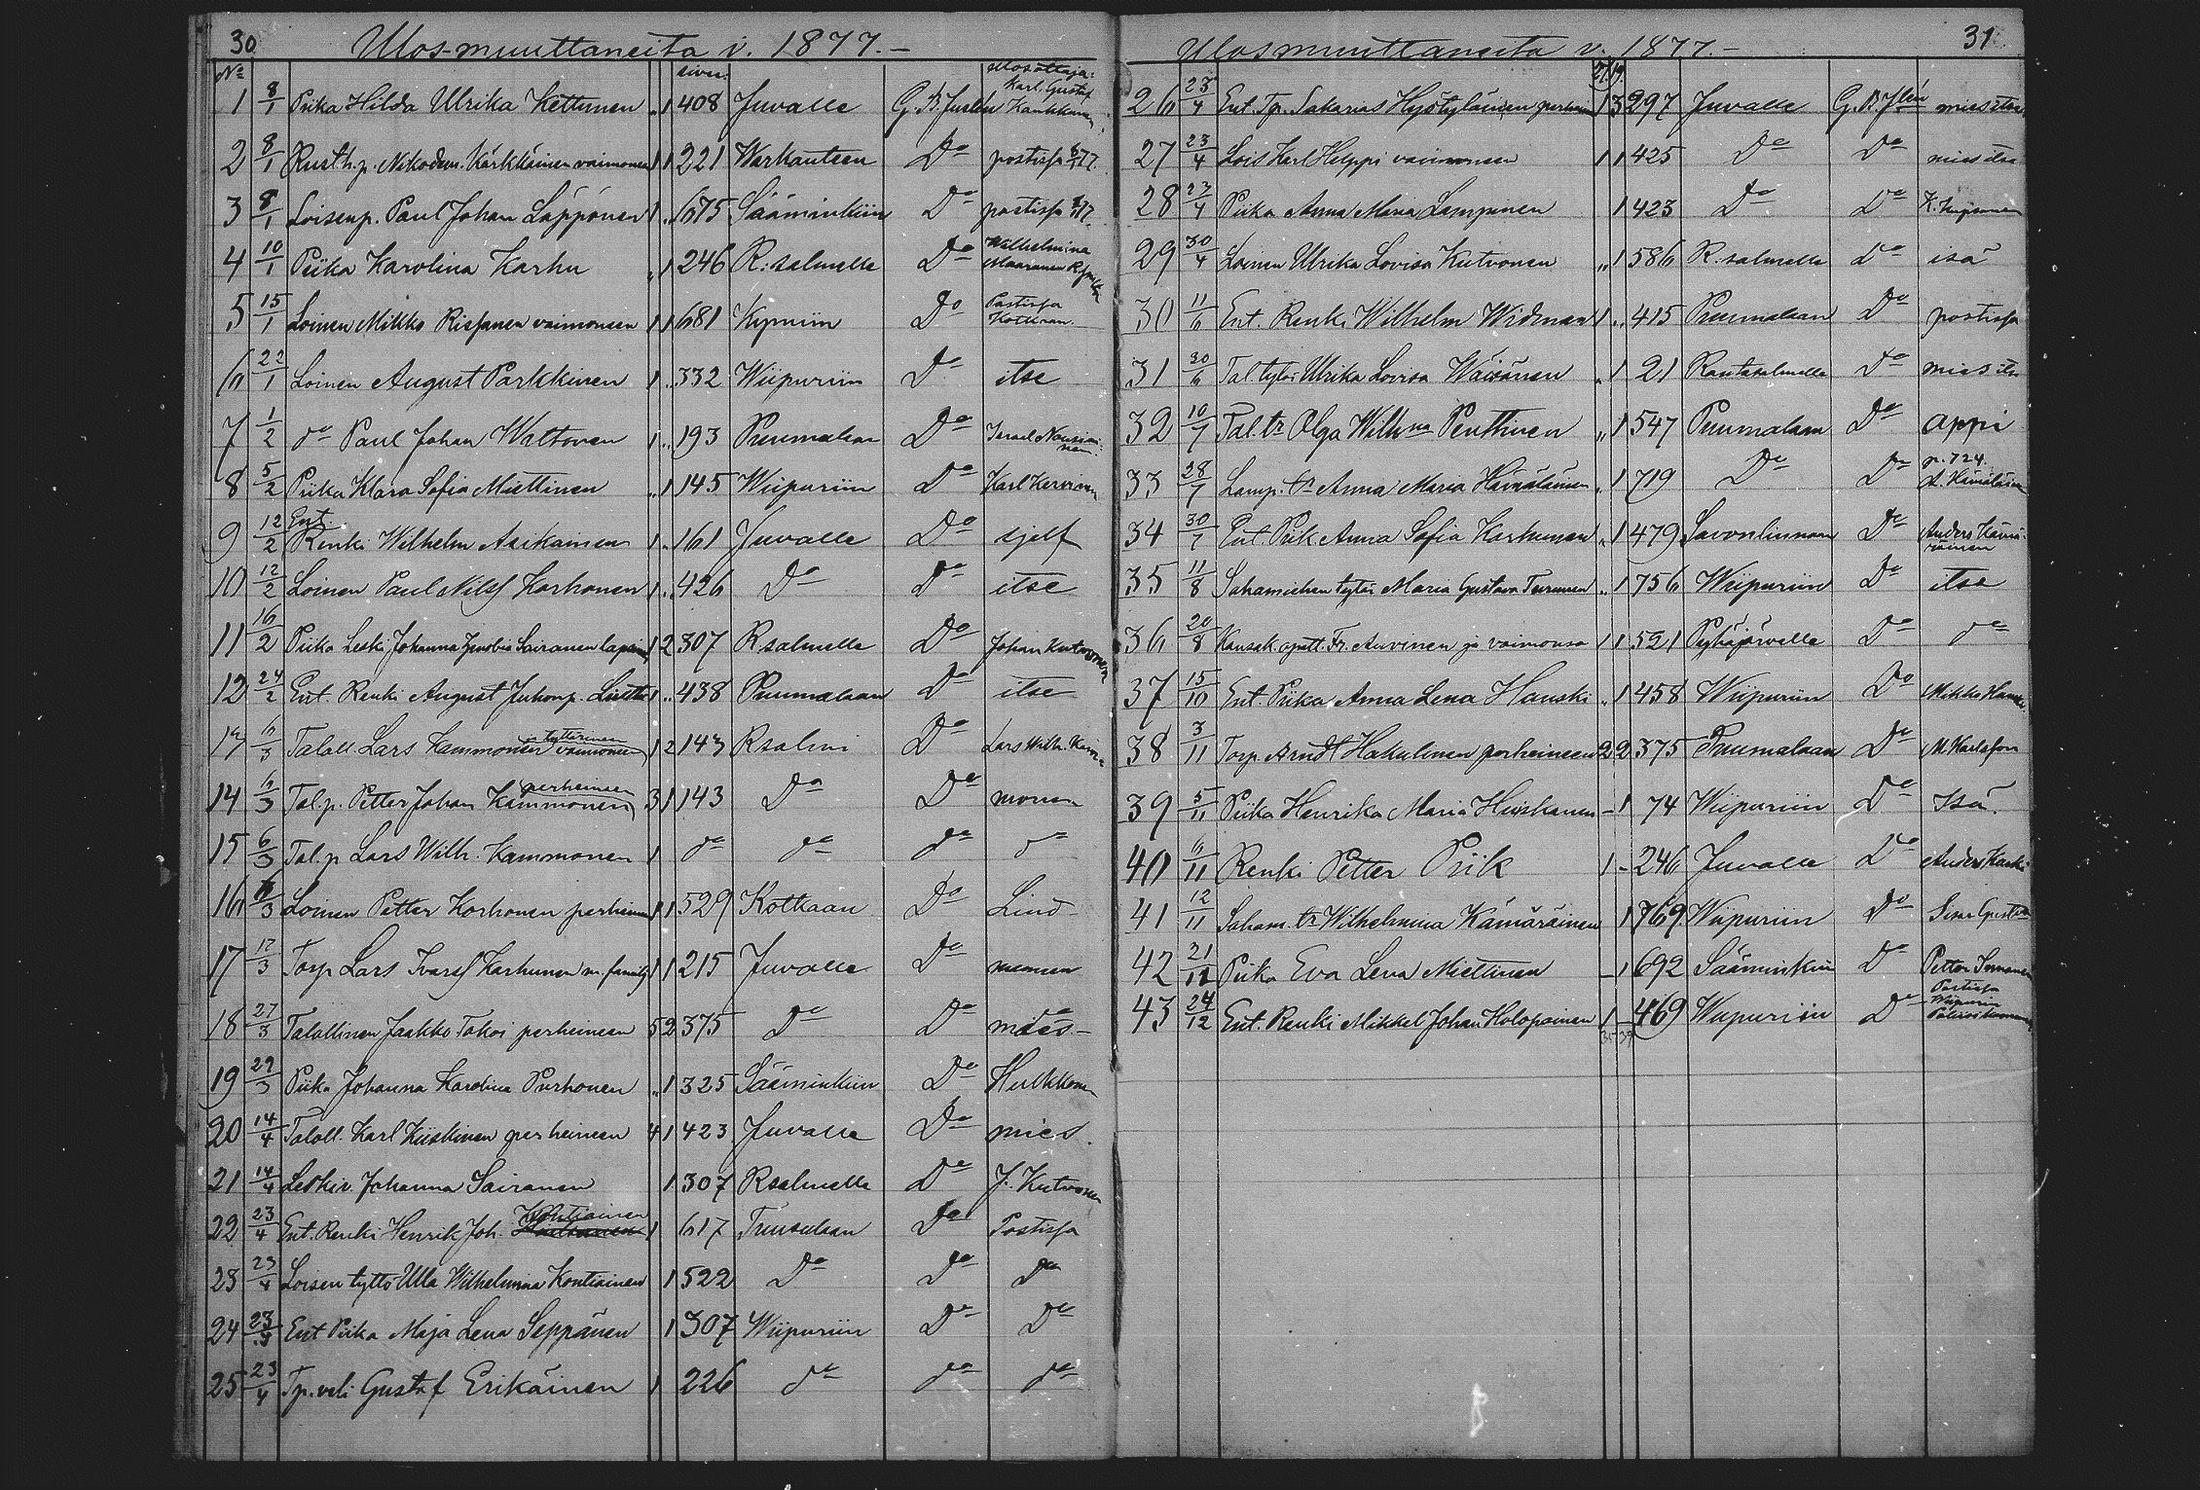 30
Ulos-muuttaneita v. 1877.-
No sivu: Ulosottaja:
1 8/1 Piika Hilda Ulrika Kettunen " 1 408 Juvalle Karl Gustaf
2 8/1 Rusth.p. Nikodem. Kärkkäinen vaimoneen 1 1 221 Warkauteen Do postissa
3 8/1 Loisenp. Paul Johan Läppönen 1 .. 675 Sääminkiin Do postissa
4 10/1 Piika Karolina Karhu " 1 246 R:salmelle Do Wilhelmina
5 15/1 Loinen Mikko Rissanen vaimoneen 1 1 681 Kymiin Do Postissa
6 22/1 Loinen August Parkkinen 1 .. 332 Wiipuriin Do itse
7 1/2 do Paul Johan Waltonen 1 .. 193 Puumalaan Do Israel
8 5/2 Piika Klara Sofia Miettinen " 1 145 Wiipuriin Do Karl
9 12/2 Ent. Renki Wilhelm Asikainen 1 .. 161 Juvalle Do sjelf
10 12/2 Loinen Paul Nilss Korhonen 1 .. 426 Do Do itse
11 16/2 Piika Leski Johanna Sairanen 1 2 307 Rsalmelle Do Johan Kutvonen
12 24/2 Ent. Renki August Juhonp. 1 .. 438 Puumalaan Do itse
13 6/3 Taloll. Lars Kammonen tyttärineen vaimoneen 1 2 143 Rsalmi Do Lars Wilh.
14 6/3 Tal.p. Petter Johan Kammonen perheineen 3 1 143 Do Do
15 6/3 Tal.p Lars Wilh. Kammonen 1 do do do do
16 6/3 Loinen Petter Korhonen perheineen 1 1 529 Kotkaan Do Lind
17 17/3 Torp Lars Ivarss Karhunen m. familj 1 1 215 Juvalle Do
18 27/3 Talollinen Jaakko Tokoi perheineen 5 2 375 Do Do mies
19 29/3 Piika Johanna Karolina Purhonen " 1 325 Sääminkiin Do Hulkkonen
20 14/4 Taloll. Karl Kiiskinen perheineen 4 1 423 Juvalle Do mies.
21 14/4 Leskiv. Johanna Sairanen 1 307 Rsalmelle Do J. Kutvonen
22 23/4 Ent. Renki Henrik Joh. Kontiainen 1 617 Puumalaan Do Postissa
23 23/4 Loisen tyttö Ulla Wilhelmina Kontiainen 1 522 Do Do Do
24 23/4 Ent Piika Maja Lena Seppänen 1 307 Wiipuriin Do Do
25 23/4 Tp.veli Gustaf Erikäinen 1 226 do do do
31
Ulosmuuttaneita v. 1877.-
26 23/4 Ent. Tp. Sakarias Hyötyläinen perheineen 1 3 297 Juvalle mies itse
27 23/4 Lois Karl Helppi vaimoneen 1 1 425 Do Do mies itse
28 23/4 Piika Anna Maria Lampinen 1 423 Do Do
29 30/4 Loinen Ulrika Lovisa Kutvonen " 1 586 R.salmella do isä
30 11/6 Ent. Renki Wilhelm Widman 1 .. 415 Puumalaan Do postissa
31 30/6 Tal tytör Ulrika Lovisa Wäisänen " 1 21 Rantasalmella Do mies itse
32 10/7 Tal.tr Olga Wilhna Penttinen " 1 547 Puumalaan Do Appi
33 28/7 Lamp. tr Anna Maria Hämäläinen " 1 719 Do Do p. 724. A. Hämäläinen
34 30/7 Ent. Piik Anna Sofia Karhunen " 1 479 Savonlinnaan Do Anders
35 11/8 Sahamiehen tytär Maria Gustava Turunen " 1 756 Wiipuriin Do itse
36 20/8 Kansak.opett. Fr. Auvinen ja vaimonsa 1 1 521 Pyhäjärvelle Do do
37 15/10 Ent. Piika Anna Lena Hanski " 1 458 Wiipuriin Do Mikko
38 3/11 Torp. Arndt Hakulinen perheineen 2 2 375 Puumalaan Do M. Karlsson
39 5/11 Piika Henrika Maria Huiskanen - 1 74 Wiipuriin Do Isä.
40 6/11 Renki Petter Piik 1 - 246 Juvalle Do Anders
41 12/11 Saham. tr Wilhelmina Kämäräinen 1 769. Wiipuriin Do
42 21/11 Piika Eva Lena Miettinen - 1 692 Sääminkiin Do Petter
43 24/12 Ent. Renki Mikkel Johan Holopainen 1 - 469 Wiipuriin Do Postissa Wiipuriin